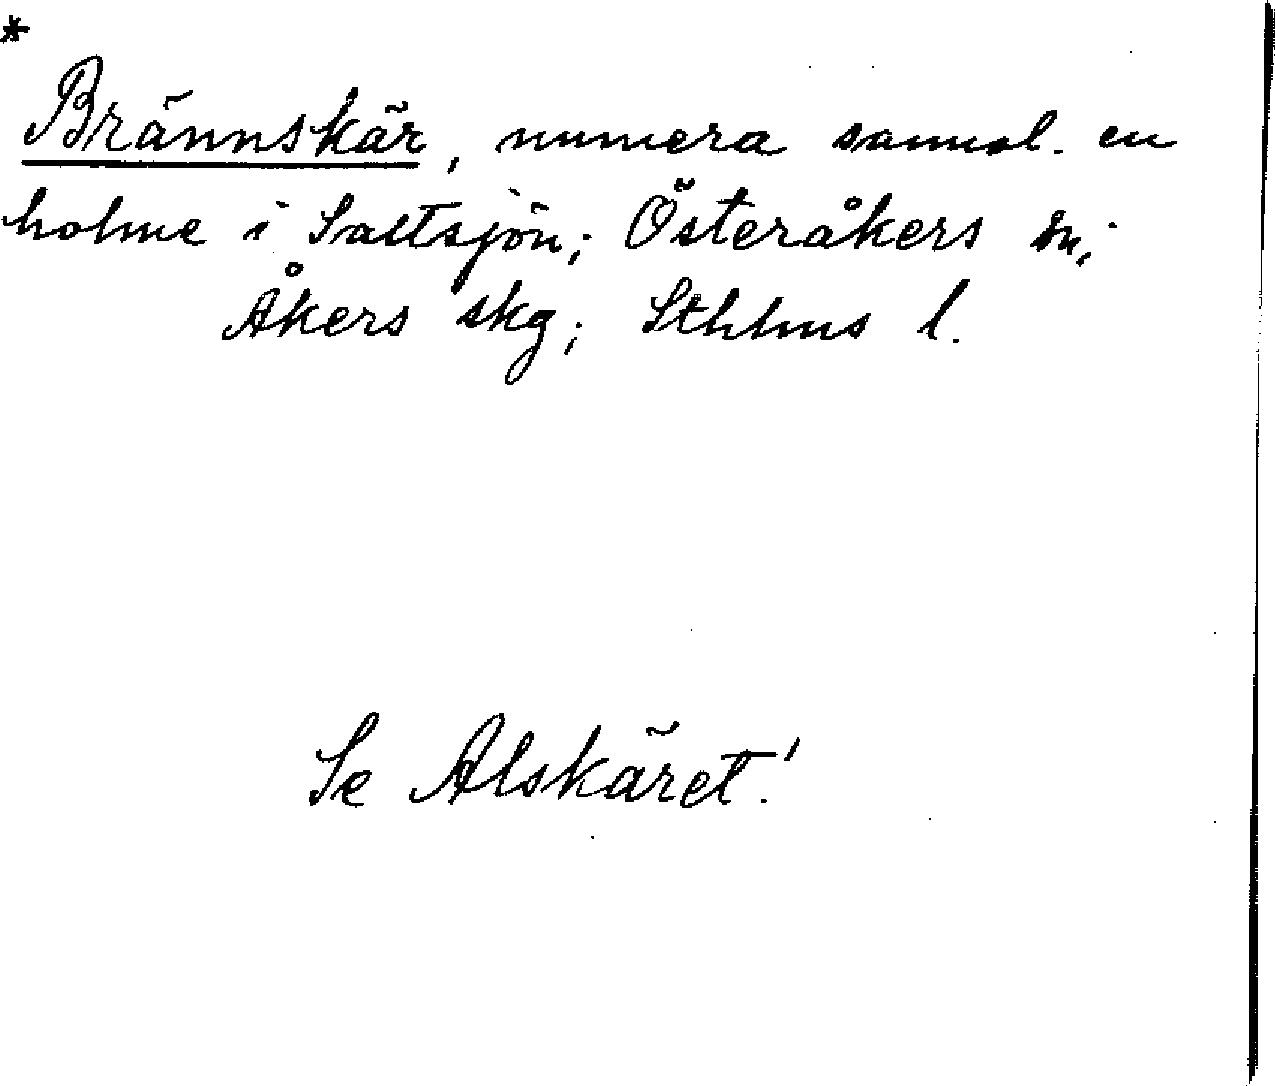 *
Brännskär, numera sannol. en
holme i Saltsjön; Österåkers sn;
Åkers skg; Sthlms l.
Se Alskäret!